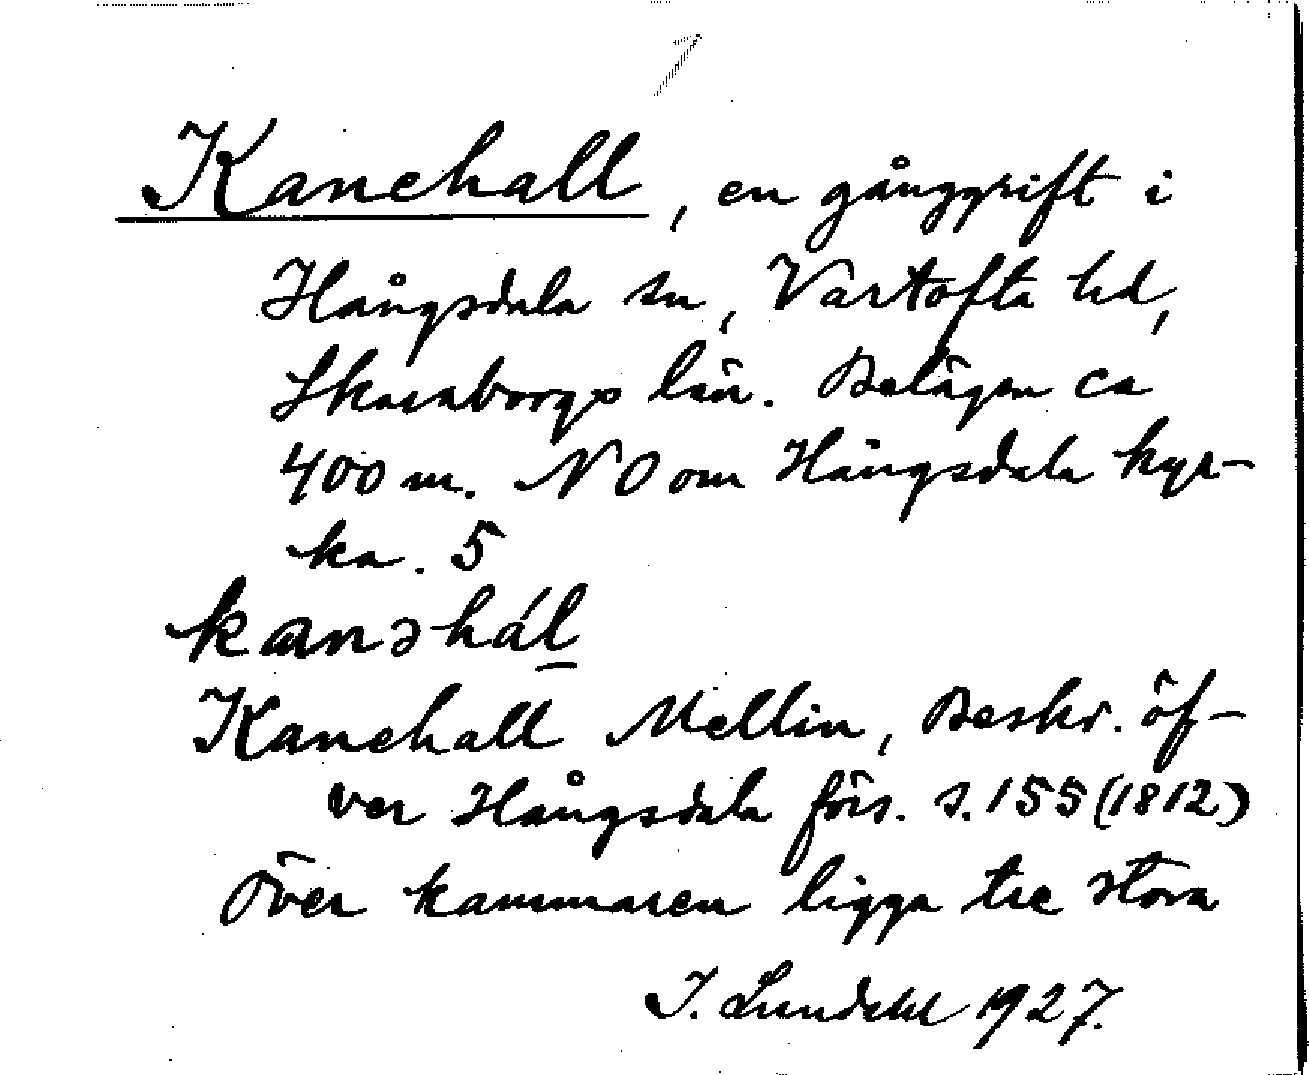 Kanehall, en gånggrift i
Hångsdala sn, Vartofta hd,
Skaraborgs län. Belägen ca
400 m. NO om Hångsdala kyr-
ka. 5
Kanehall Mellin, Beskr. öf-
ver Hångsdala förs. s. 155 (1812)
Över kammaren ligga tre stora
I. Lundahl 1927.